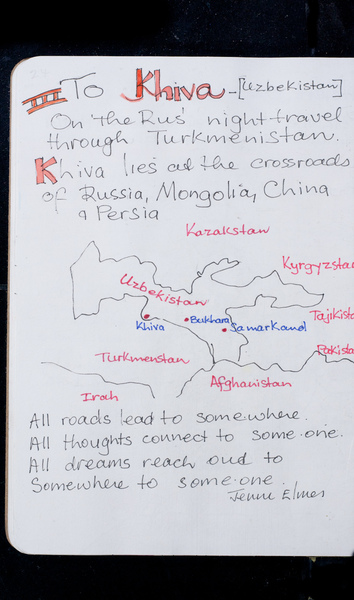 III To Khiva - [Uzbekistan]
On the Rus' night-travel
through Turkmenistan.
Khiva lies at the crossroads
of Russia, Mongolia, China
& Persia
Kazakstan
Kyrgyzstan
Uzbekistan
Tajikista
Khiva
Bukhara
Samarkand
Turkmenstan
Pakist
Afghanistan
Irah
All roads lead to somewhere.
All thoughts connect to some.one.
All dreams reach oud to
Somewhere to some one
Jenni Elmes